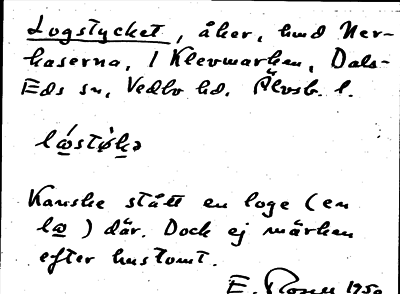 Logstycket, åker, hmd Ner-
kaserna, 1 Klevmarken, Dals-
Eds sn, Vedbo hd. Älvsb. l.
Kanske stått en loge (en
lo̲) där. Dock ej märken
efter hustomt.
E. Rosen 1950